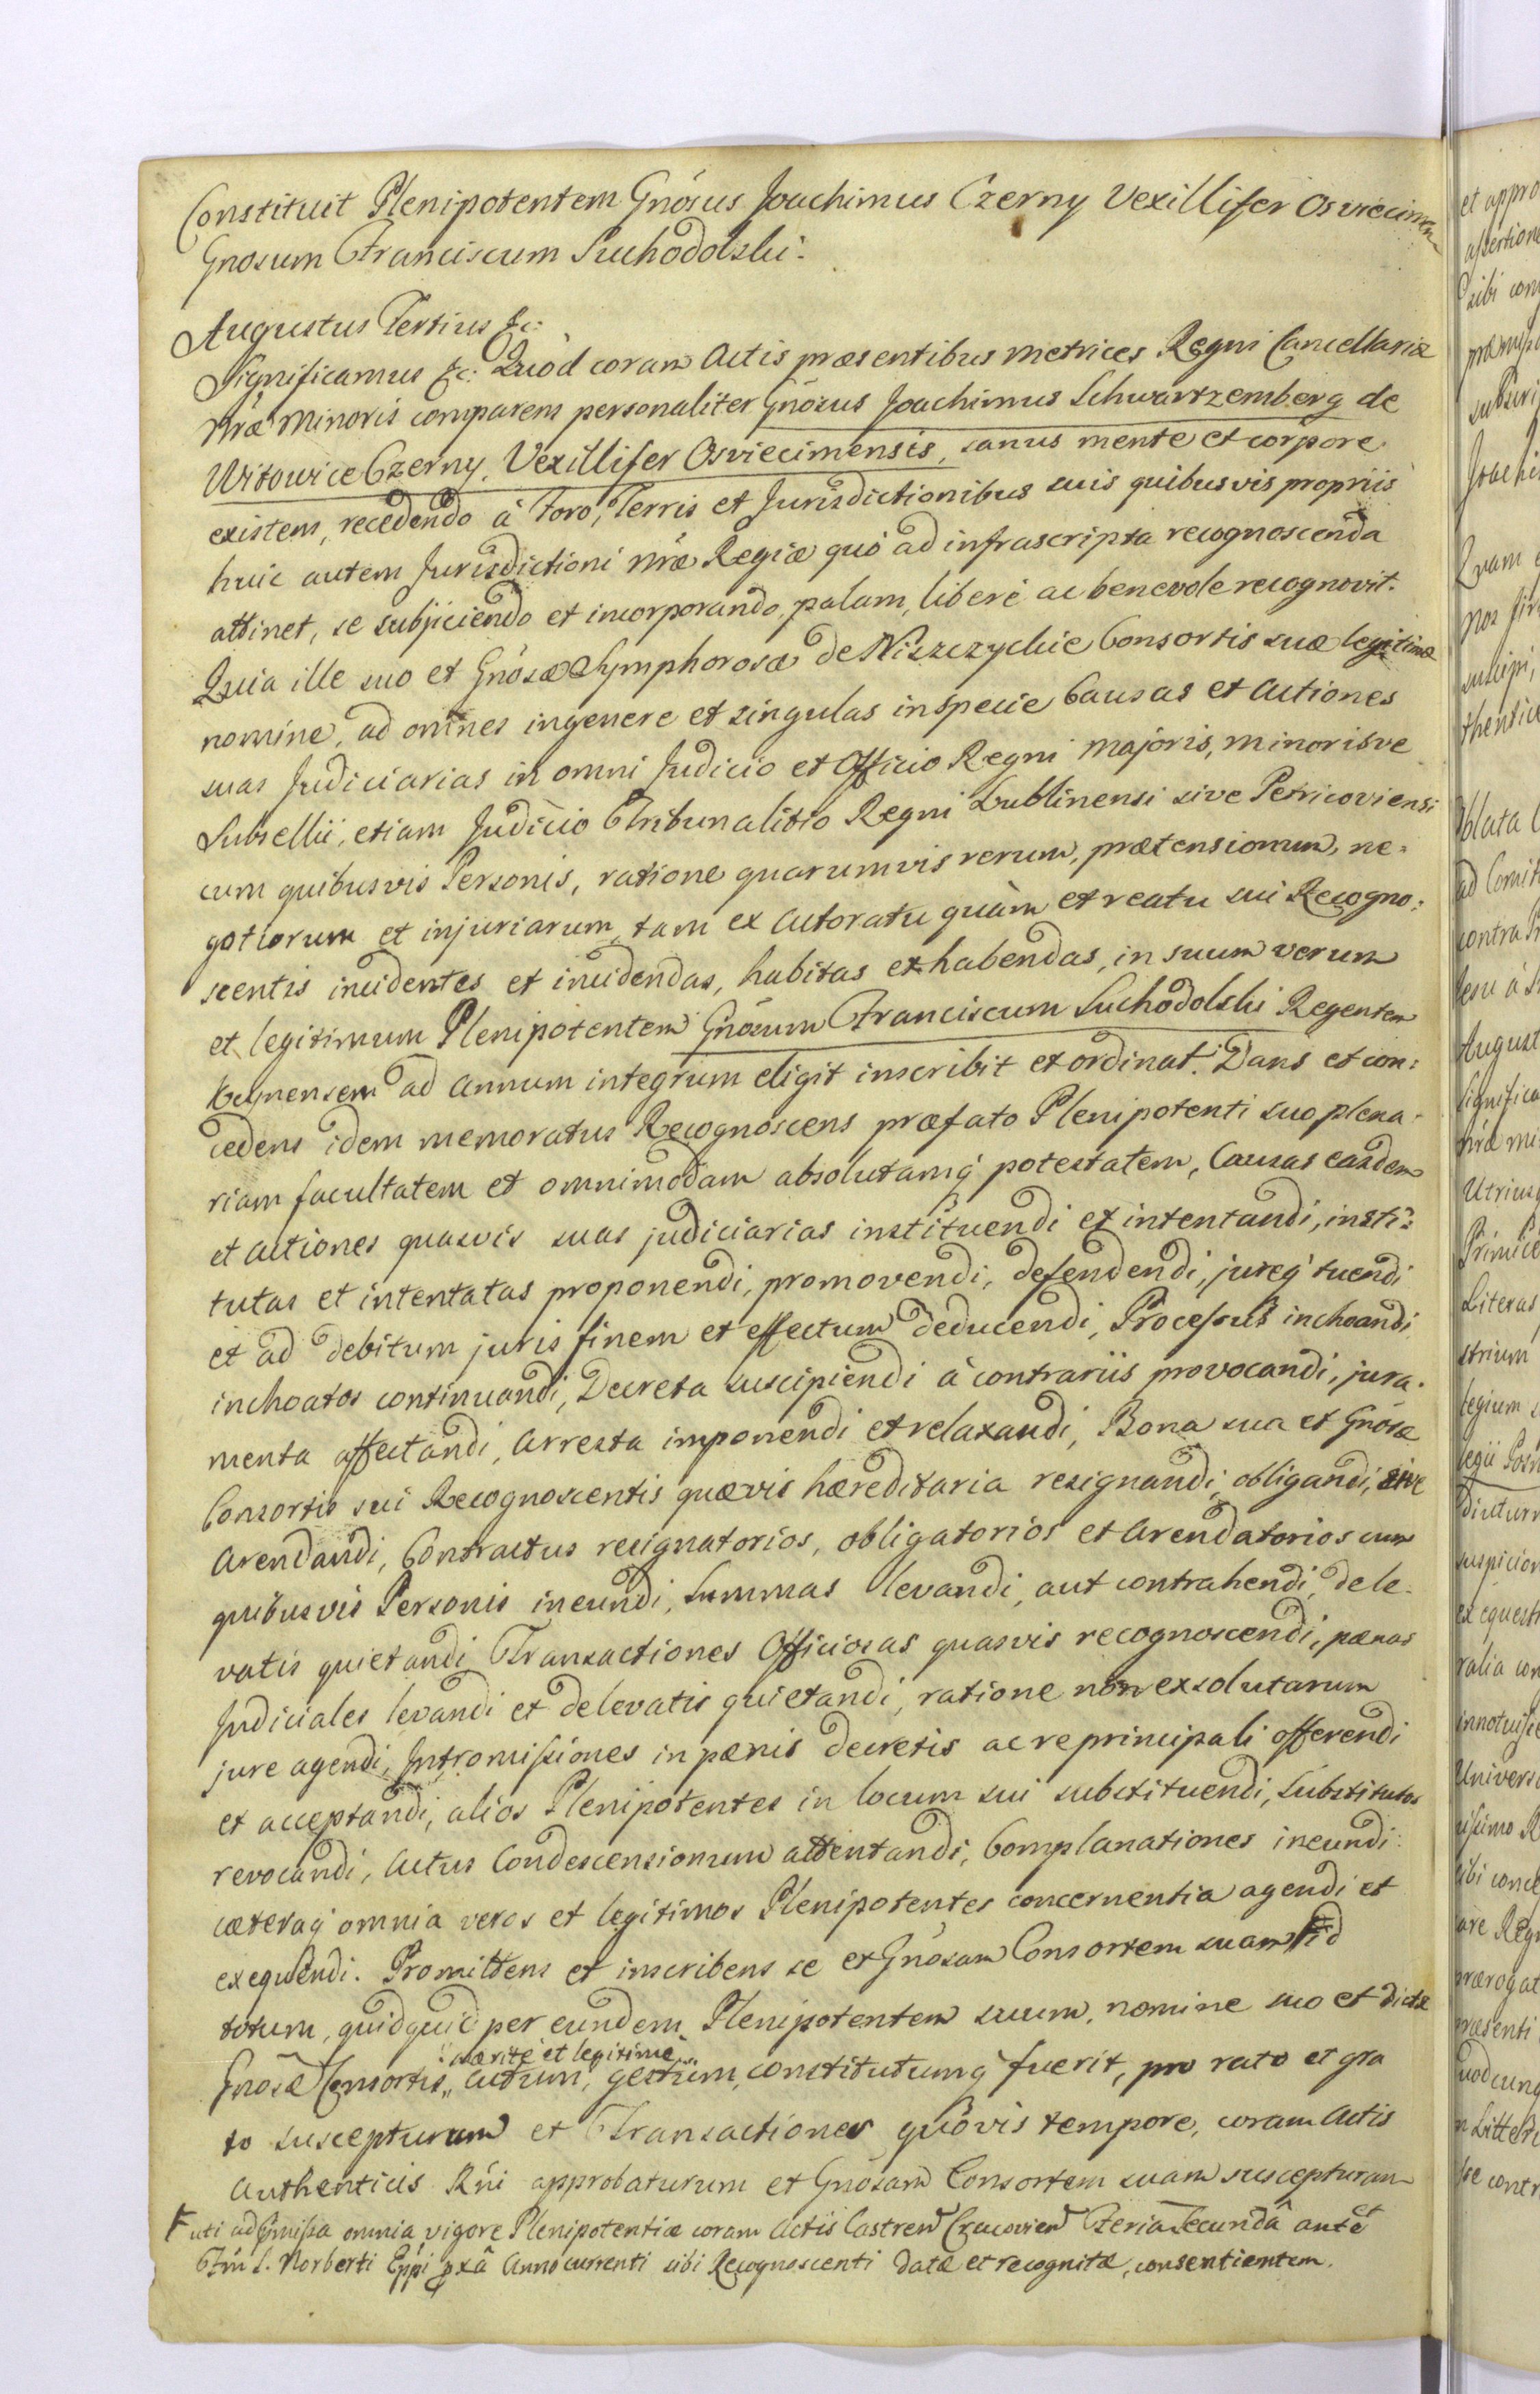 Constituit Plenipotentem Gnosus Joachimus Czerny Vexillifer Osviecimen
Gnosum Franciscum Suchodolski.
Augustus Tertius &c:
Significamus &c: Quod coram Actis præsentibus Metrices Regni Cancellariæ
Nræ Minoris comparens personaliter Gnosus Joachimus Schwartzemberg de
Witowice Czerny, Vexillifer Osviecimensis, sanus mente et corpore
existens, recedendo à Foro, Terris et Jurisdictionibus suis quibusvis propriis
huic autem Jurisdictioni Nræ Regiæ quò ad infrascripta recognoscenda
attinet, se subjiciendo et incorporando, palam, liberè ac benevole recognovit.
Quia ille suo et Gnosæ Symphorosæ de Niszczyckie Consortis suæ legitimæ
nomine, ad omnes ingenere et singulas inspecie Causas et Actiones
suas Judiciarias in omni Judicio et Officio Regni majoris, minorisve
Subsellii, etiam Judicio Tribunalitio Regni Lublinensi sive Petricoviensi
cum quibusvis Personis, ratione quarumvis rerum, prætensionum, ne=
gotiorum et injuriarum, tam ex Actoratu quàm et reatu sui Recogno:
scentis incidentes et incidendas, habitas et habendas, in suum verum
et legitimum Plenipotentem Gnosum Franciscum Suchodolski Regentem
ad Annum integrum eligit inscribit et ordinat. Dans et con:
cedens idem memoratus Recognoscens præfato Plenipotenti suo plena-
riam facultatem et omnimodam absolutamq' potestatem, Causas easdem
et Actiones quasvis suas judiciarias instituendi et intentandi, insti=
tutas et intentatas proponendi, promovendi, defendendi, jureq' tuendi
et ad debitum juris finem et effectum deducendi, Processus inchoandi
inchoatos continuandi, Decreta suscipiendi à contrariis provocandi, jura-
menta affectandi, Arresta imponendi et relaxandi, Bona sua et Gnosæ
Consortis sui Recognoscentis quævis hæreditaria resignandi, obligandi, sive
Arendandi, Contractus resignatorios, obligatorios et Arendatorios cum
quibusvis Personis ineundi, Summas levandi, aut contrahendi, de le-
vatis quietandi Transactiones Officiosas quasvis recognoscendi, pænas
Judiciales levandi et delevatis quietandi, ratione non exsolutarum
jure agendi, Intromissiones in pænis decretis ac re principali offerendi
et acceptandi, alios Plenipotentes in locum sui substituendi, Substitutos
revocandi, Actus Condescensionum attentandi, Complanationes ineundi
cæteraq' omnia veros et legitimos Plenipotentes concernentia agendi et
exequendi. Promittens et inscribens se et Gnosam Consortem suam id
totum, quidquid per eundem Plenipotentem suum, nomine suo et dictæ
ritè et legitimè
Gnosæ Consortis, actum, gestum, constitutumq' fuerit, pro rato et gra
to suscepturum et Transactiones quovis tempore, coram Actis
Authenticis Rni approbaturum et Gnosam Consortem suam suscepturam
uti ad præmissa omnia vigore Plenipotentiæ coram Actis Castren Cracovien Feria Secunda ante
Ftm S. Norberti Eppi pxâ Anno currenti sibi Recognoscenti datæ et recognitæ, consentientem.